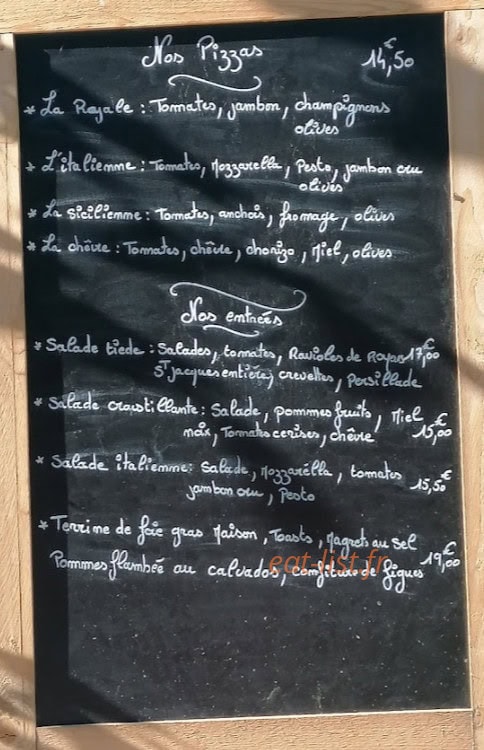 Nos Pizzas 14,50€
* La Royale : Tomates, jambon, champignons
olives
* L'italienne : Tomates, Mozzarella, Pesto, jambon cru
olives
* La sicilienne : Tomates, anchois, fromage, olives
* La chêvre : Tomates, chêvre, chorizo, Miel, olives
Nos entrées
* Salade tiede : Salades, tomates, Ravioles de Royan 17,00€
St jacques entière, crevettes, Persillade
* Salade croustillante : Salade, pommes fruits, Miel
noix, Tomates cerises, chêvre 15,00€
* Salade italienne : Salade, Mozzarella, tomates
jambon cru, Pesto 15,50€
* Terrine de foie gras Maison, Toasts, Magrets au sel
Pommes flambée au calvados, confiture de figues 19,00€
eat-list.fr